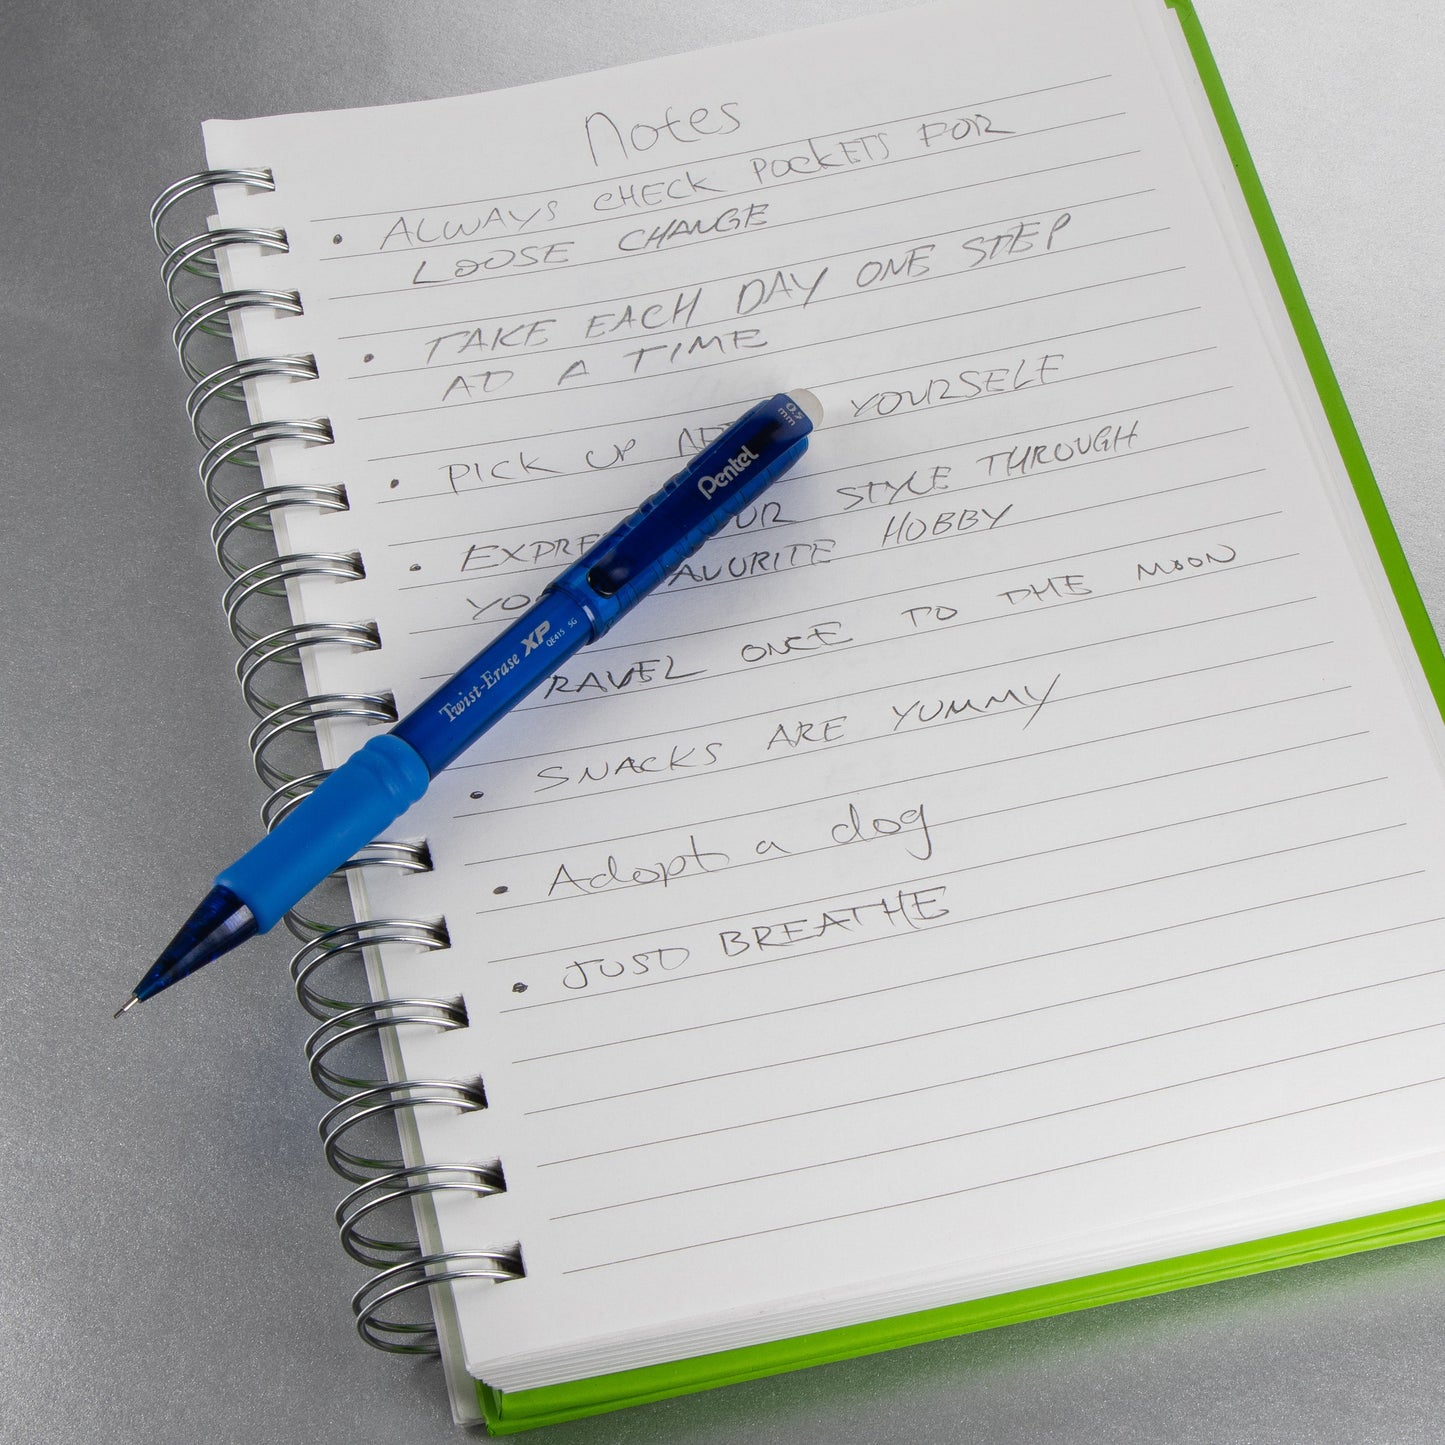 Notes
• ALWAYS CHECK POCKETS FOR
LOOSE CHANGE
• TAKE EACH DAY ONE STEP
AT A TIME
• PICK UP YOURSELF
• EXPRE UR STYLE THROUGH
YO AVURITE HOBBY
RAVEL ONCE TO THE MOON
• SNACKS ARE YUMMY
• Adopt a dog
• JUST BREATHE
0.5
mm
Pentel
Twist-Erase XP
QE415 SG